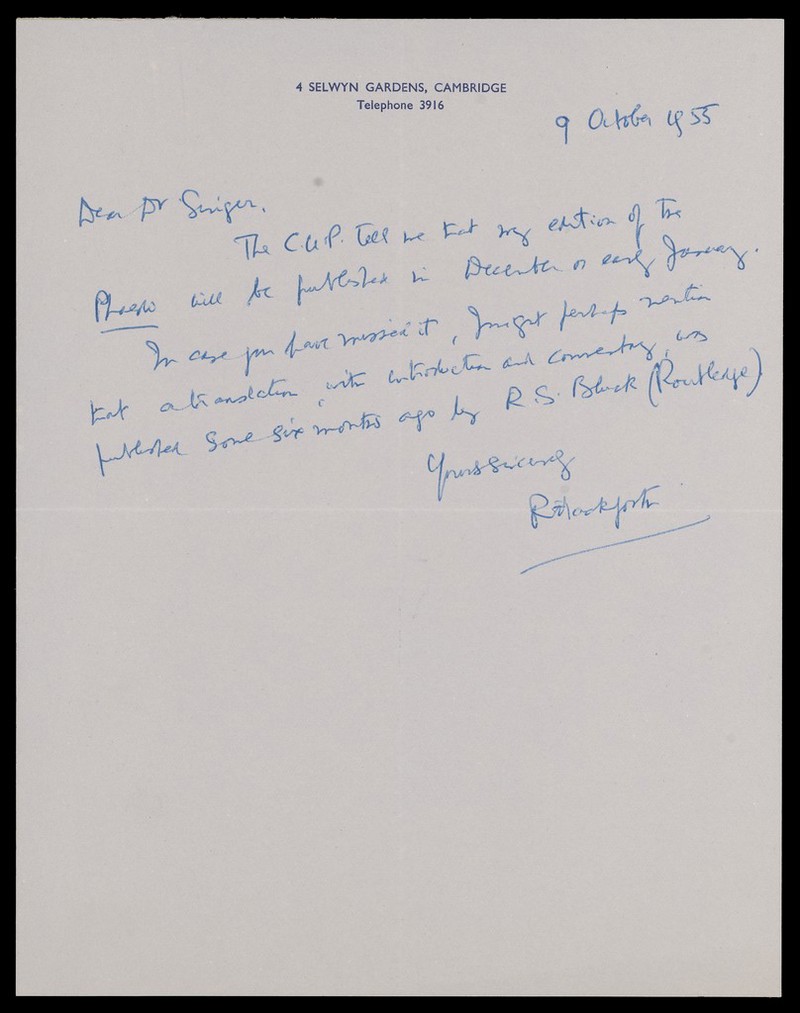 4 SELWYN GARDENS, CAMBRIDGE
Telephone 3916
9 October 1955
Dear Dr Singer,
The C.U.P. tell me that my edition of the
Phaedo will be published in December or early January.
In case you have missed it, I might perhaps mention
that a translation, with introduction and commentary, was
published some six months ago by R. S. Bluck (Routledge)
Yours sincerely
R Hackforth